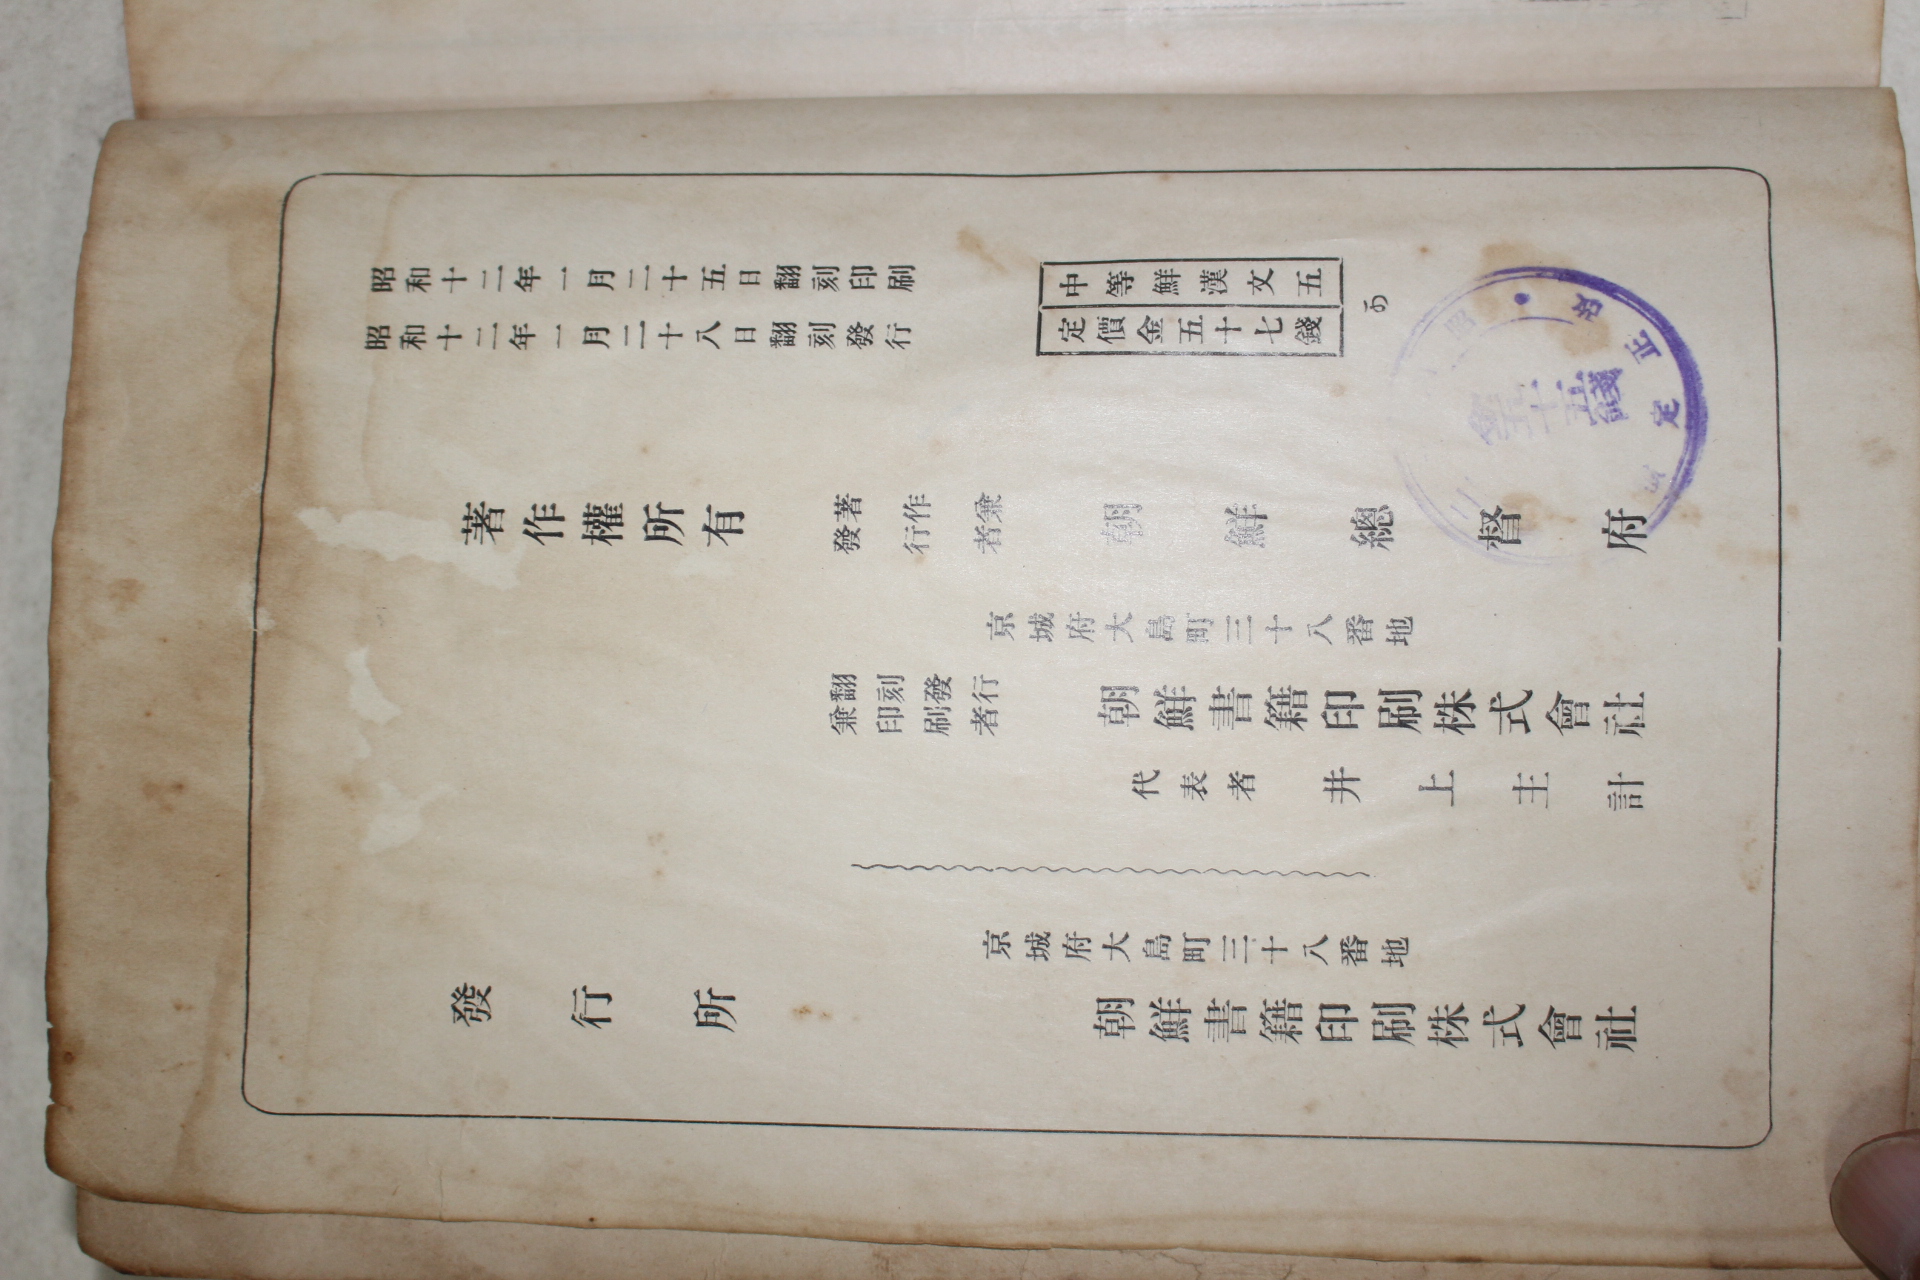 昭和十二年一月二十五日翻刻印刷
昭和十二年一月二十八日翻刻發行
中等鮮漢文五
定價金五十七錢
著作權所有
著作兼
發行者
朝鮮總督府
京城府大島町三十八番地
翻刻發行
兼印刷者
朝鮮書籍印刷株式會社
代表者 井上主計
京城府大島町三十八番地
發行所
朝鮮書籍印刷株式會社
改正定